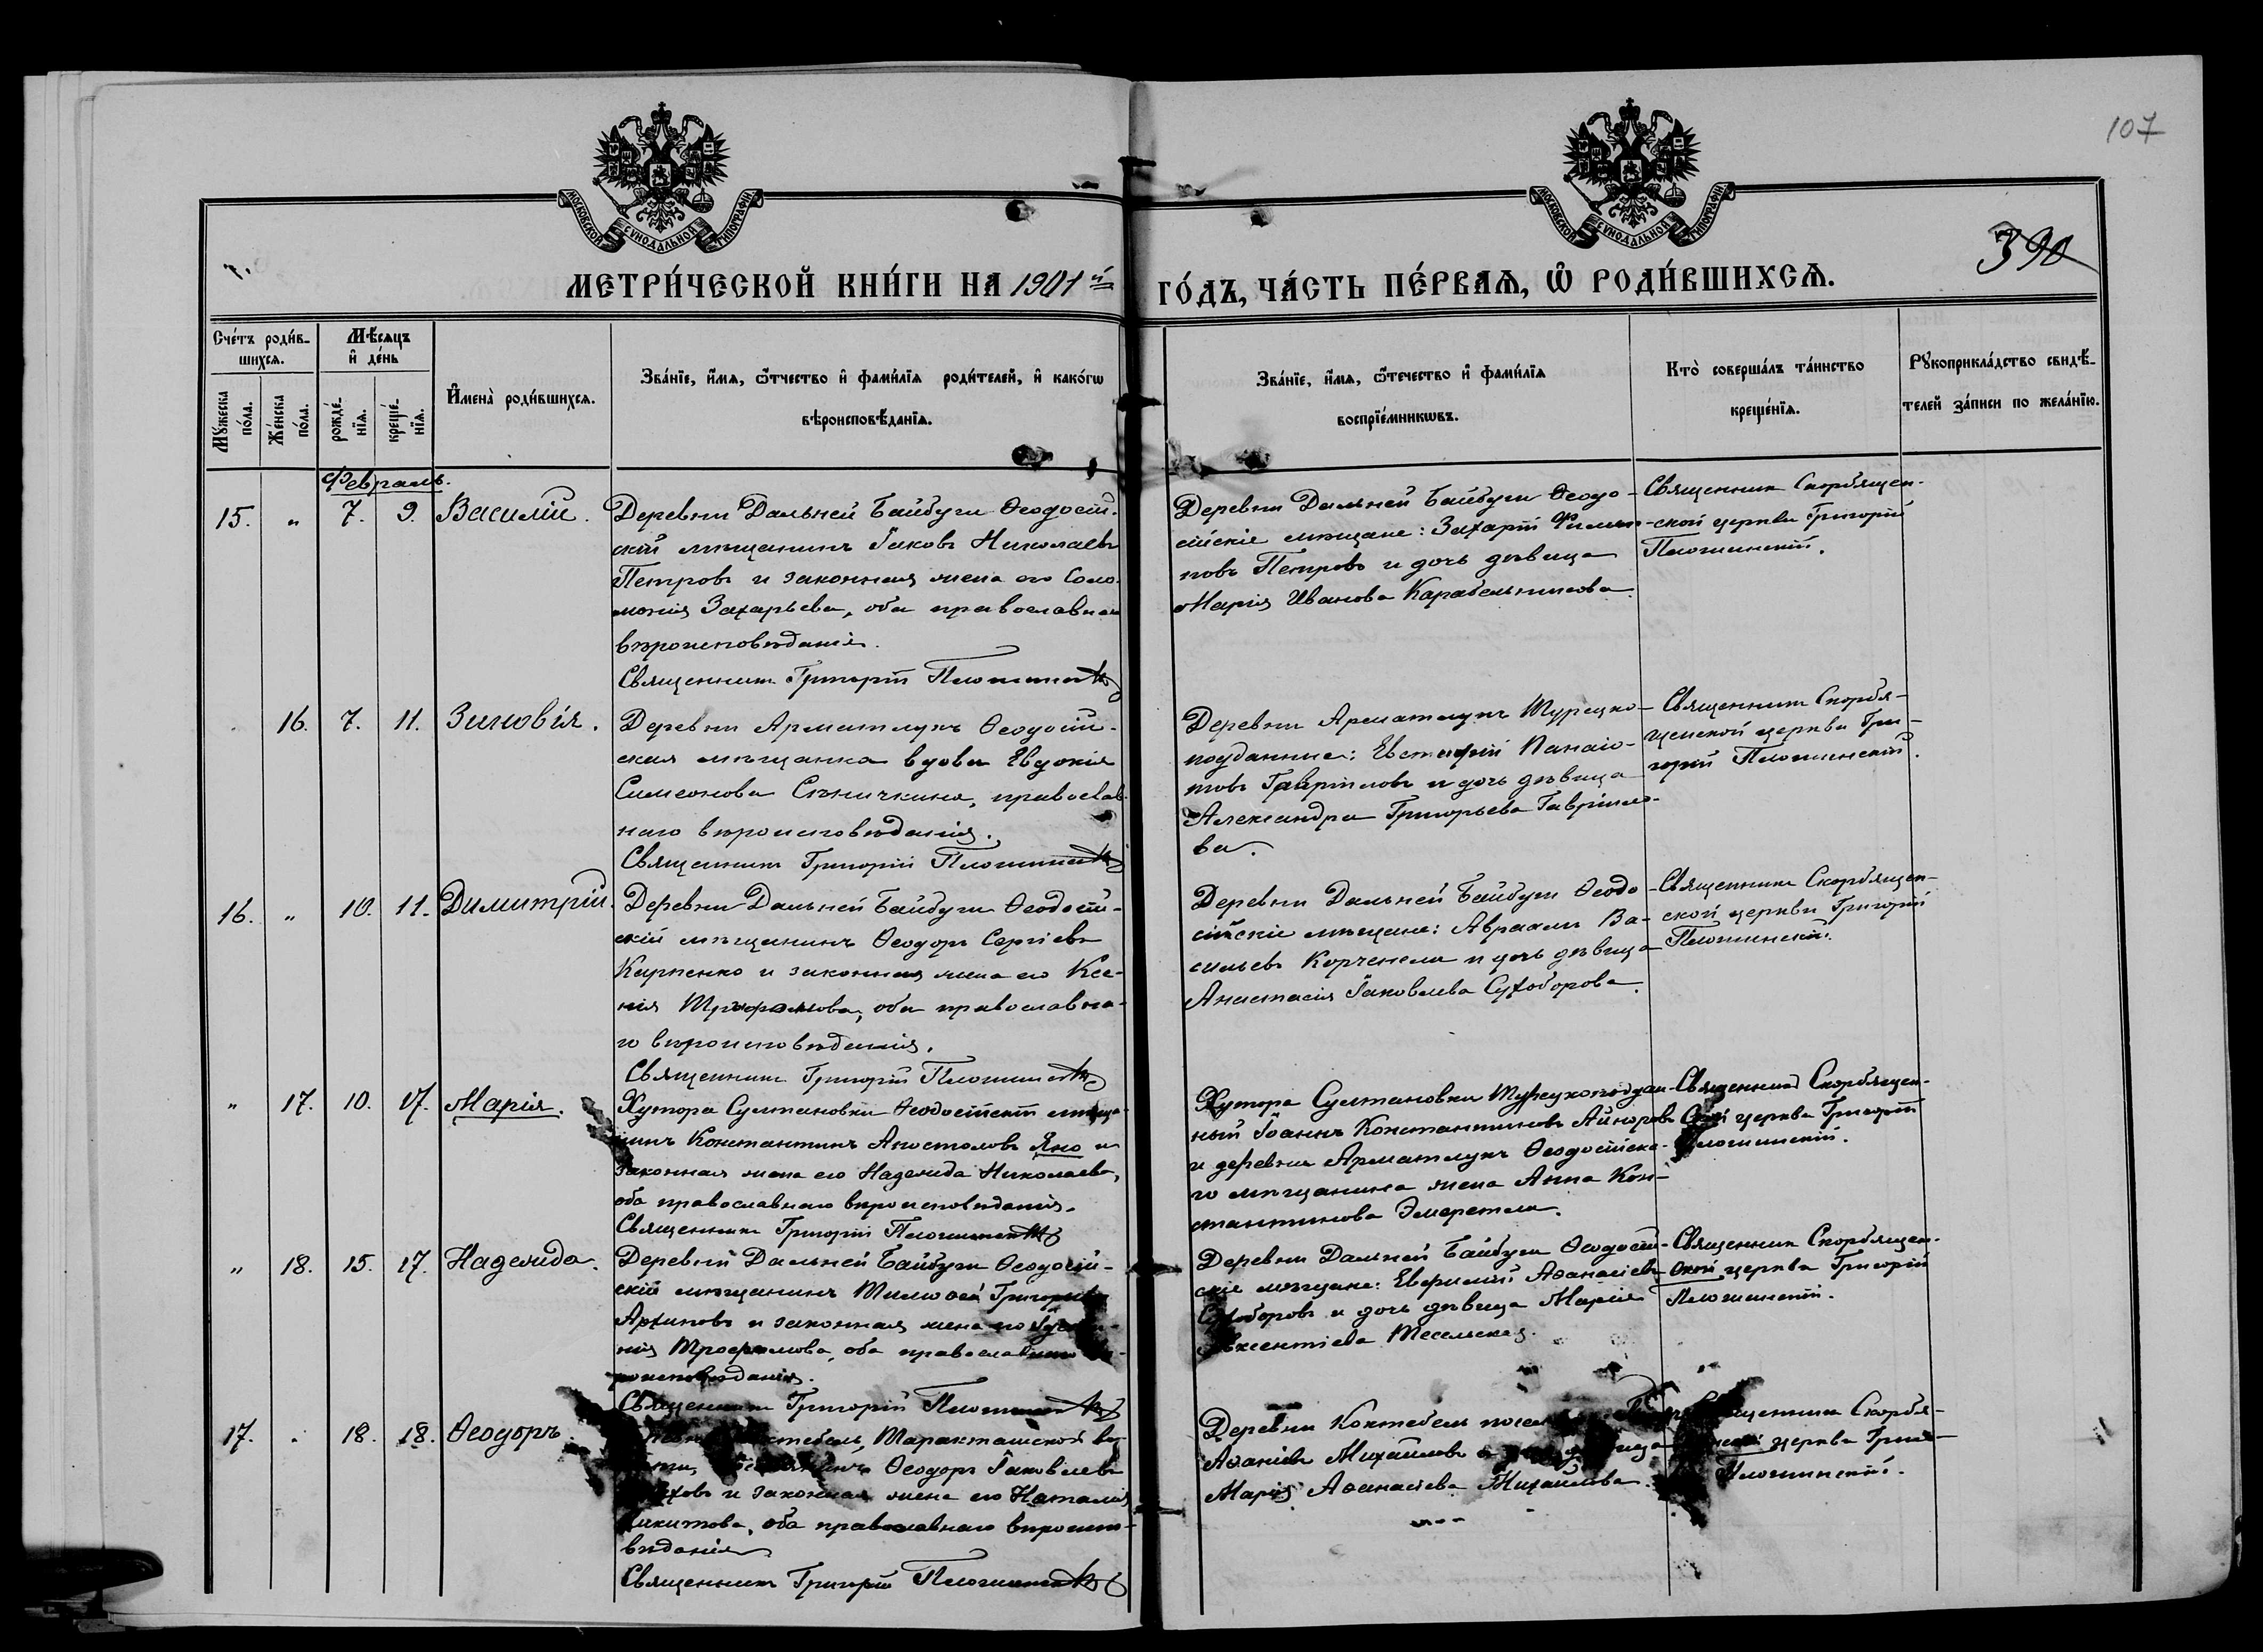 107
МОСКОВСКОЙ СѴНОДАЛЬНОЙ ТИПОГРАФІИ
МОСКОВСКОЙ СѴНОДАЛЬНОЙ ТИПОГРАФІИ
390
МЕТРИ́ЧЕСКОЙ КНИ́ГИ НА 1901й
ГО́ДЪ, ЧА́СТЬ ПЕ́РВАѦ, Ѡ҆ РОДИ́ВШИХСѦ.
Сче́тъ роди́в-
шихсѧ.
Мѣ́сѧцъ
и҆ де́нь
Мꙋжеска
по́ла.
Же́нска
по́ла.
рожде́-
нїѧ.
креще́-
нїѧ.
И҆мена̀ роди́вшихсѧ.
Зва́нїе, и҆́мѧ, ѻ҆́тчество и҆ фами́лїѧ роди́телей, и҆ како́гѡ
вѣроисповѣ́данїѧ.
Зва́нїе, и҆́мѧ, ѻ҆те́чество и҆ фами́лїѧ
воспрїе́мникѡвъ.
Кто̀ соверша́лъ та́инство
креще́нїѧ.
Рꙋкоприкла́дство свидѣ́-
телей за́писи по жела́нїю.
Февраль.
15. „ 7. 9. Василій.
Деревни Дальней Байбуги Ѳеодосій-
скій мѣщанинъ Іаковъ Николаевъ
Петровъ и законная жена его Соло-
монія Захарьева, оба православнаго
вѣроисповѣданія.
Священникъ Григорій
Деревни Дальней Байбуги Ѳеодо-
сійскіе мѣщане: Захарій Филип-
повъ Петровъ и дочь дѣвица
Марія Иванова Карабельникова.
Священникъ Скорбящен-
ской церкви Григорій
16. 7. 11. Зиновія.
Деревни Арматлукъ Ѳеодосій-
ская мѣщанка вдова Евдокія
Симеонова Сѣничкина, православ-
наго вѣроисповѣданія.
Священникъ Григорій
Деревни Арматлукъ Турецко-
подданные: Евстафій Панаіо-
товъ Гавріиловъ и дочь дѣвица
Александра Григорьева Гавріило-
ва.
Священникъ Скорбя-
щенской церкви Гри-
горій
16. „ 10. 11. Димитрій.
Деревни Дальней Байбуги Ѳеодосій-
скій мѣщанинъ Ѳеодоръ Сергіевъ
Карпенко и законная жена его Ксе-
нія Трофимова, оба православна-
го вѣроисповѣданія.
Священникъ Григорій
Деревни Дальней Байбуги Ѳеодо-
сійскіе мѣщане: Авраамъ Ва-
сильевъ и дочь дѣвица
Анастасія Іаковлева Сухоборова.
Священникъ Скорбящен-
ской церкви Григорій
„ 17. 10. 17. Марія.
Хутора Султановки Ѳеодосійскій мѣща-
нинъ Константинъ Апостоловъ Яно и
законная жена его Надежда Николаева,
оба православнаго вѣроисповѣданія.
Священникъ Григорій
Хутора Султановки Турецкоподдан-
ный Іоаннъ Константиновъ
и деревни Арматлукъ Ѳеодосійска-
го мѣщанина жена Анна Кон-
стантинова
Священникъ Скорбящен-
ской церкви Григорій
„ 18. 15. 17. Надежда.
Деревни Дальней Байбуги Ѳеодосій-
скій мѣщанинъ Тимоѳей Григорьевъ
Архиповъ и законная жена его
нія Трофимова, оба православнаго
роисповѣданія.
Священникъ Григорій
Деревни Дальней Байбуги Ѳеодосій-
скіе мѣщане: Евфимій Аѳанасіевъ
Сухоборовъ и дочь дѣвица Марія
Священникъ Скорбящен-
ской церкви Григорій
17. „ 18. 18. Ѳеодоръ.
Таракташской во-
Ѳеодоръ Іаковлевъ
и законная жена его Наталія
Никитова, оба православнаго вѣроиспо-
вѣданія
Священникъ Григорій
Деревни Коктебель
Михайловъ
Марія Аѳанасіева Михайлова.
Священникъ Скорбя-
церкви